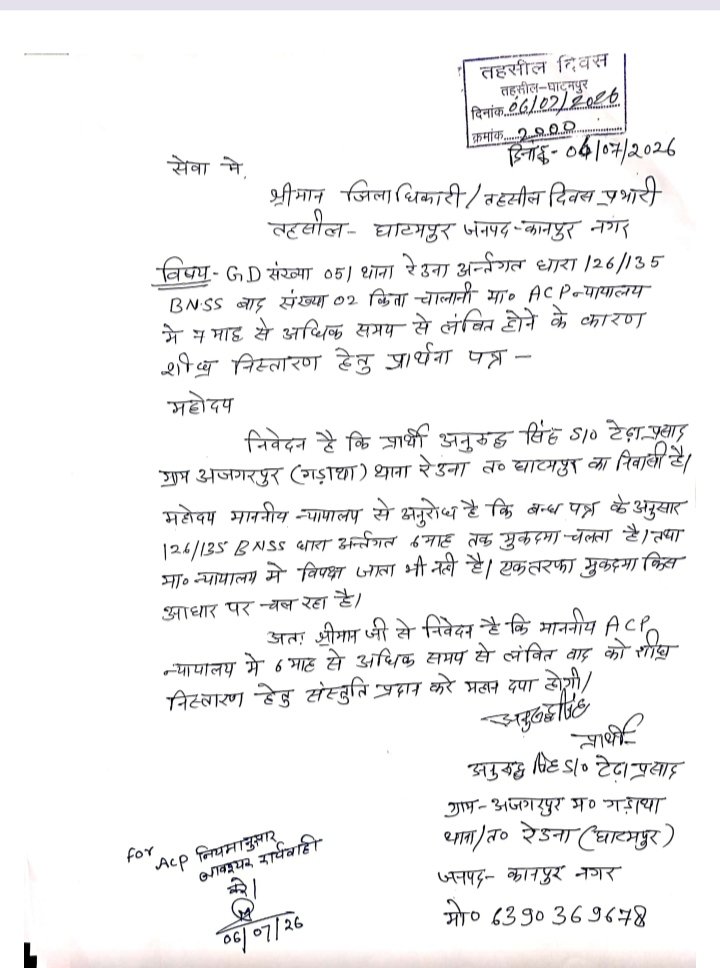 तहसील दिवस
तहसील-घाटमपुर
दिनांक 06/07/2026
क्रमांक 2000
दिनांक- 04/07/2026
सेवा मे,
श्रीमान जिलाधिकारी/तहसील दिवस प्रभारी
तहसील- घाटमपुर जनपद-कानपुर नगर
विषय- GD संख्या 051 थाना रेउना अर्न्तगत धारा 126/135
BNSS वाद संख्या 02 किता चालानी मा० ACP न्यायालय
मे 7 माह से अधिक समय से लंबित होने के कारण
शीघ्र निस्तारण हेतु प्रार्थना पत्र -
महोदय
निवेदन है कि प्रार्थी अनुरुद्ध सिंह S/O टेढ़ा प्रसाद
ग्राम अजगरपुर (गड़ाथा) थाना रेउना त० घाटमपुर का निवासी है।
महोदय माननीय न्यायालय से अनुरोध है कि बन्ध पत्र के अनुसार
126/135 BNSS धारा अर्न्तगत 6 माह तक मुकदमा चलता है। तथा
मा० न्यायालय मे विपक्ष जाता भी नही है। एकतरफा मुकदमा किस
आधार पर चल रहा है।
अतः श्रीमान जी से निवेदन है कि माननीय ACP
न्यायालय मे 6 माह से अधिक समय से लंबित वाद को शीघ्र
निस्तारण हेतु संस्तुति प्रदान करे महान दया होगी।
अनुरुद्ध सिंह
प्रार्थी
अनुरुद्ध सिंह S/O टेढा प्रसाद
ग्राम- अजगरपुर म० गड़ाथा
थाना/त० रेउना (घाटमपुर)
जनपद- कानपुर नगर
मो० 6390369678
for ACP नियमानुसार
आवश्यक कार्यवाही
करें।
06/07/26